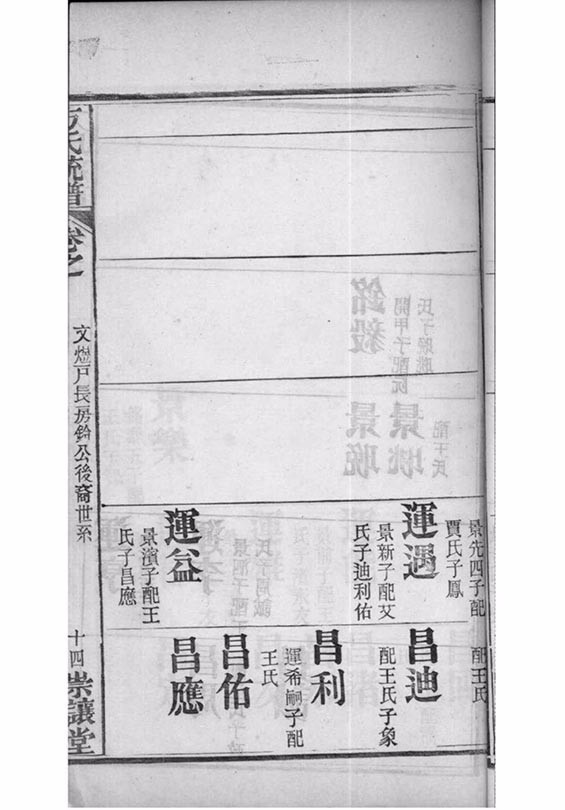 景先四子配
賈氏子鳳
運遇
景新子配艾
氏子迪利佑
運益
景濱子配王
氏子昌應
配王氏
昌迪
配王氏子象
昌利
運希嗣子配
王氏
昌佑
昌應
方氏統譜
卷之
戶長房鈴公後裔世系
十四
崇讓堂